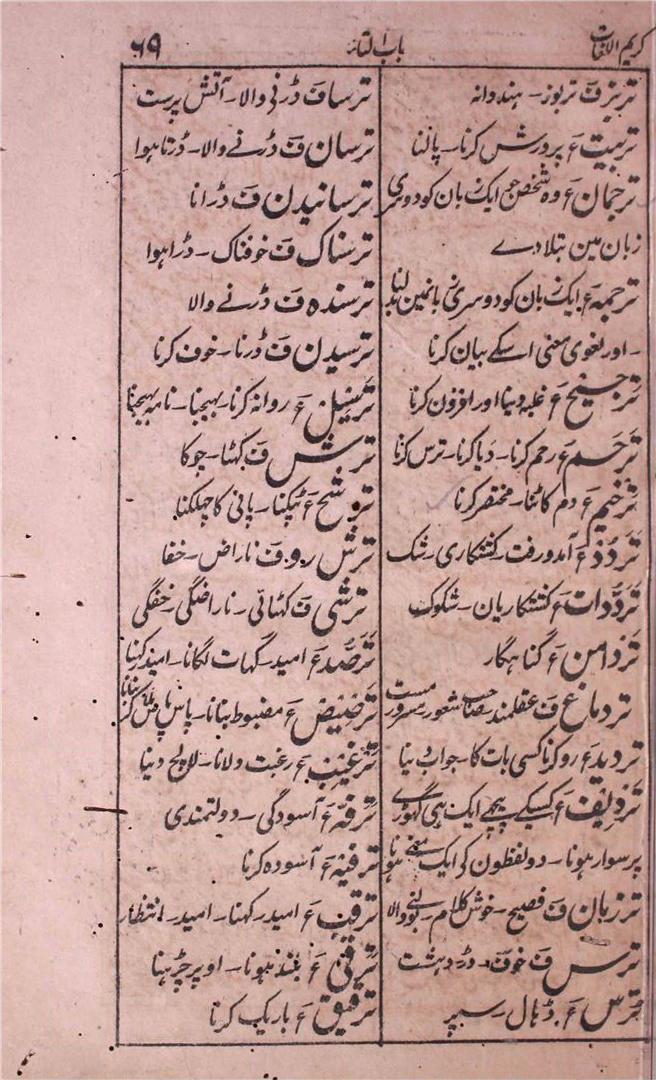 کریم اللغات
باب التاء
۶۹
تربز ف تربوز۔ ہندوانہ
تربیت ع پرورش کرنا۔ پالنا
ترجمان ع وہ شخص جو ایک زبان کو دوسری
زبان مین بتلا دے
ترجمہ ع ایک زبان کو دوسری زبانمین بدلنا
۔ اور لغوی معنی اسکے بیان کرنا
ترجیح ع غلبہ دینا اور افزون کرنا
ترحم ع رحم کرنا۔ دیا کرنا۔ ترس کرنا
ترخیم ع دم کاٹنا۔ مختصر کرنا
تردد ع آمد و رفت۔ کشتکاری۔ شک
ترددات ع کشتکاریان۔ شکوک
تر دامن ع گناہگار
تر دماغ ف عقلمند۔ صاحب شعور۔ سرور۔ مست
تردید ع رو کرنا کسی بات کا۔ جواب دینا
تردیف ع کسیکے پیچھے ایک ہی گھوڑے
پر سوار ہونا۔ دو لفظون کی ایک معنے ہونا
تر زبان ف فصیح۔ خوش کلام۔ بولنے والا
ترس ف خوف۔ ڈر۔ دہشت
ترس ع ڈہال۔ سپر
ترسا ف ڈرنی والا۔ آتش پرست
ترسان ف ڈرنے والا۔ ڈرتا ہوا
ترسانیدن ف ڈرانا
ترسناک ف خوفناک۔ ڈرا ہوا
ترسندہ ف ڈرنے والا
ترسیدن ف ڈرنا۔ خوف کرنا
ترسیل ع روانہ کرنا۔ بھیجنا۔ نامہ بھیجنا
ترش ف کہٹا۔ چوکا
ترشح ع ٹپکنا۔ پانی کا چھلکنا
ترش رو ف ناراض۔ خفا
ترشی ف کہٹائی۔ ناراضگی۔ خفگی
ترصد ع امید۔ گہات لگانا۔ امید کہنا
ع مضبوط بنانا۔ پاس پاس
ترغیب ع رغبت دلانا۔ لالچ دینا
ترفہ ع آسودگی۔ دولتمندی
ترفیہ ع آسودہ کرنا
ترقب ع امید۔ کہنا۔ امید۔ انتظار
ترقی ع بلند ہونا۔ اوپر چڑہنا
ترقیق ع باریک کرنا